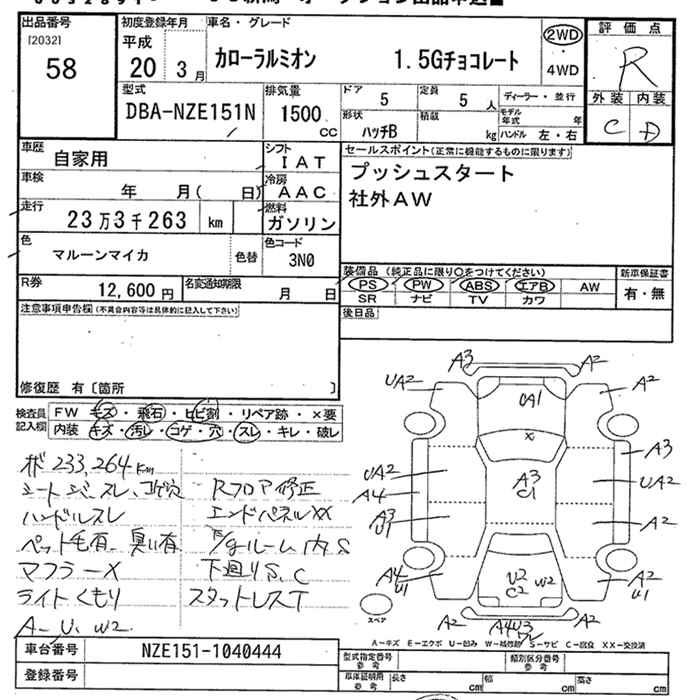 出品番号
[2032]
58
初度登録年月
平成
20 3月
車名・グレード
カローラルミオン 1.5Gチョコレート
2WD
・
4WD
評価点
R
外装 内装
C D
型式
DBA-NZE151N
排気量
1500
cc
ドア
5
定員
5人
ディーラー・並行
形状
ハッチB
積載
kg
モデル年式
年
ハンドル 左・右
車歴
自家用
シフト
IAT
車検
年 月( 日)
冷房
AAC
走行
23万3千263 km
燃料
ガソリン
色
マルーンマイカ
色替
色コード
3N0
R券
12,600円
名変通知期限
月 日
セールスポイント(正常に機能するものに限ります)
プッシュスタート
社外AW
装備品(純正品に限り○をつけてください)
PS PW ABS エアB AW
SR ナビ TV カワ
新車保証書
有・無
後日品
注意事項申告欄(不具合内容等は具体的に記入して下さい)
修復歴 有〔箇所 〕
検査員記入欄
FW キズ・飛石・ヒビ割・リペア跡・×要
内装 キズ・汚レ・コゲ・穴・スレ・キレ・破レ
233,264km
シート スレ、コゲ穴
ハンドルスレ
ペット毛有、臭い有
マフラーX
ライトくもり
A-、U、W2
Rフロア修正
エンドパネルXX
ルーム内S
下廻りS、C
スタットレスT
A3
A2
UA2
A2
UA1
X
A3
UA2
A3
C1
UA2
A4
A3
U1
A2
A4
U1
U2
C2
W2
A2
U1
スペア
A2
A2
A-キズ E-エクボ U-凹み W-補修跡 S-サビ C-腐食 XX-交換済
車台番号
NZE151-1040444
登録番号
型式指定番号
参考
類別区分番号
参考
車庫証明用
参考
長さ
cm
幅
cm
高さ
cm